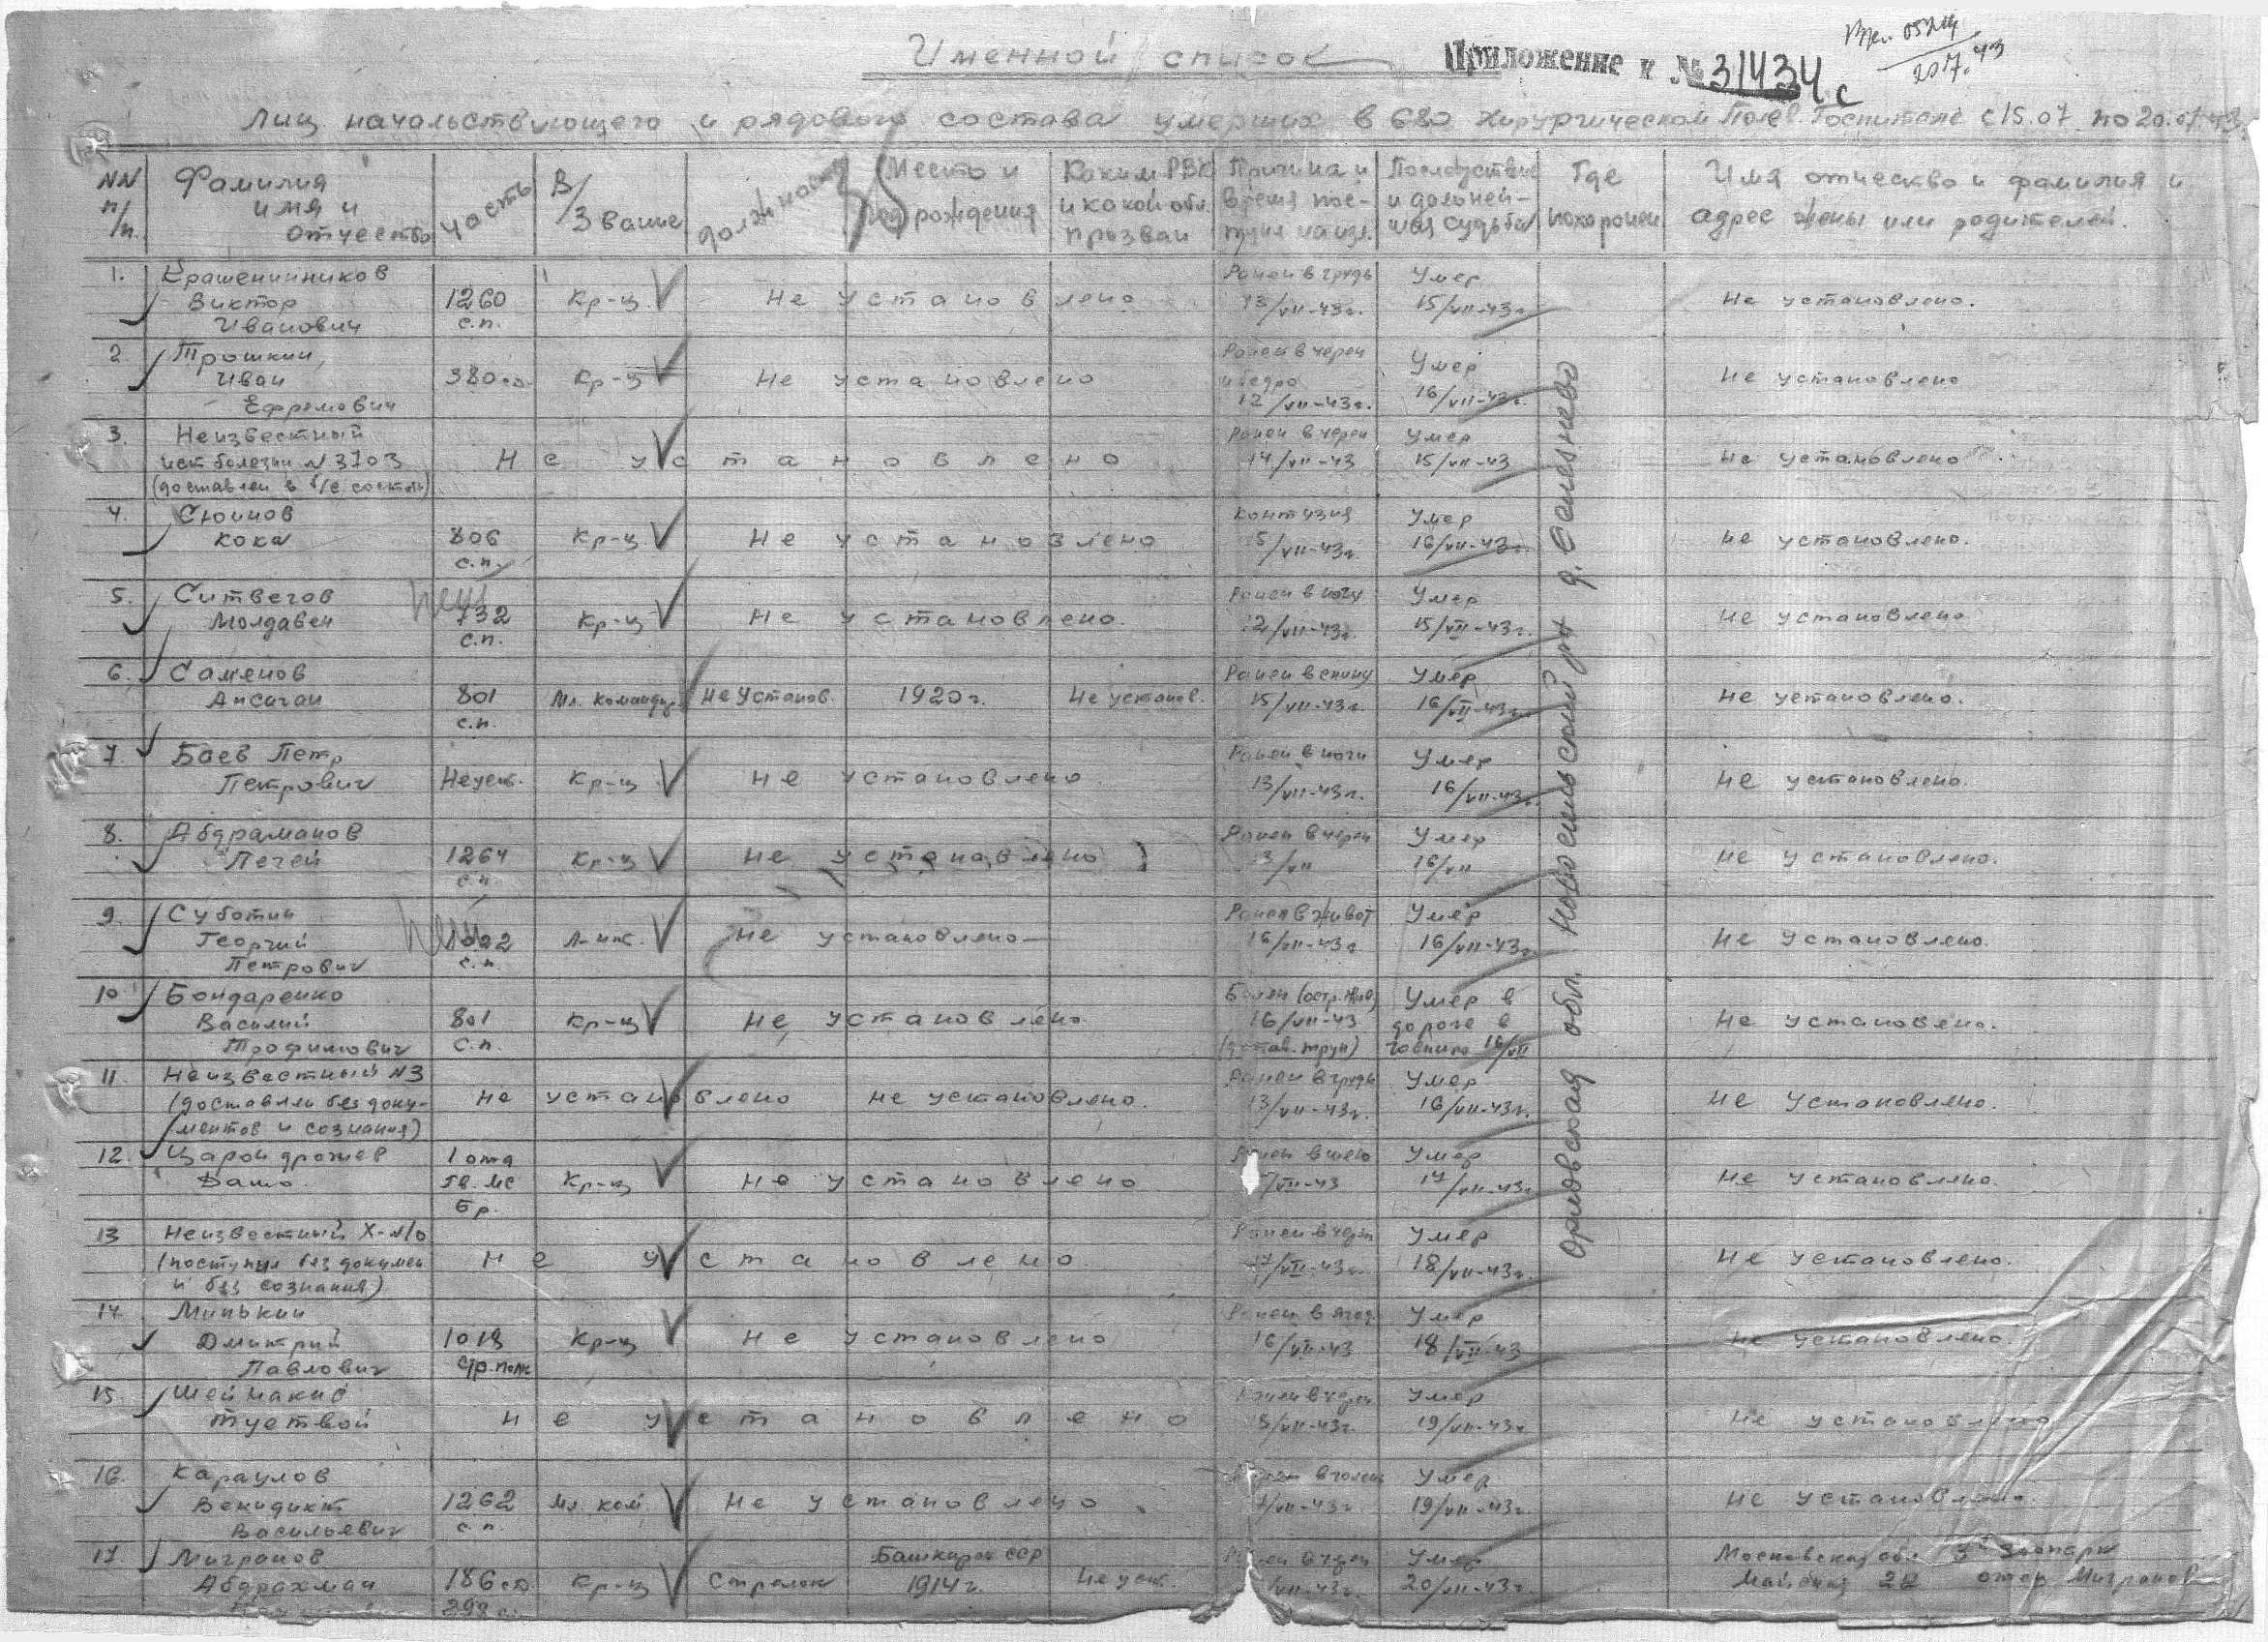 Именной список
Приложение к № 31434 с
Вх. 05214
20.7.43
Лиц начальствующего и рядового состава умерших в 680 Хирургическом Полев. Госпитале с 15.07 по 20.07.43
NN п/п.
Фамилия имя и отчество
часть
В/Звание
должность
Место и год рождения
Каким РВК и какой обл. призван
Причина и время пос-
Последствия и дальней-шая судьба
Где похоронен
Имя отчество и фамилия и адрес жены или родителей.
Орловская обл. Новосильский р-н д. Селезнево
1. Крашенинников Виктор Иванович 1260 с.п. Кр-ц Не установлено Ранен в грудь 13/VII-43г. Умер 15/VII-43г. Не установлено.
2. Трошкин Иван Ефремович 380 с.п. Кр-ц Не установлено Ранен в череп и бедро 12/VII-43г. Умер 16/VII-43г. Не установлено
3. Неизвестный ист болезни N 3703 (доставлен в б/с состоян) Не установлено Ранен в череп 14/VII-43 Умер 15/VII-43 Не установлено
4. Сюинов Кока 806 с.п. Кр-ц Не установлено Контузия 15/VII-43г. Умер 16/VII-43г. Не установлено.
5. Ситвегов Молдавен 732 с.п. Кр-ц Не установлено. Ранен в ногу 12/VII-43г. Умер 15/VII-43г. Не установлено
6. Саменов Ансаган 801 с.п. Мл. командир Не Установ. 1920г. Не установ. Ранен в спину 15/VII-43г. Умер 16/VII-43г. Не установлено.
7 Баев Петр Петрович Не уст. Кр-ц Не установлено Ранен в ноги 13/VII-43г. Умер 16/VII-43г. Не установлено.
8. Абдраманов Печей 1264 с.п. Кр-ц Не установлено Ранен в череп 13/VII Умер 16/VII Не установлено.
9. Суботин Георгий Петрович 1022 с.п. Л-нт. Не установлено Ранен в живот 16/VII-43г. Умер 16/VII-43г. Не установлено.
10 Бондаренко Василий Трофимович 801 с.п. Кр-ц Не установлено Болен (остр. жив) 16/VII-43 (достав. труп) Умер в дороге в госпит 16/VII Не установлено.
11. Неизвестный N3 (доставлен без доку-ментов и сознания) Не установлено не установлено. Ранен в грудь 13/VII-43г. Умер 16/VII-43г. Не установлено.
12. Царондрожев Дашо. 1 отд гв. мс бр. Кр-ц Не установлено Ранен в шею 7/VII-43 Умер 17/VII-43г. Не установлено.
13 Неизвестный Х-N/о (поступил без докумен и без сознания) Не установлено Ранен в череп 17/VII-43г. Умер 18/VII-43г. Не установлено.
14 Минькин Дмитрий Павлович 1019 стр. полк Кр-ц Не установлено Ранен в ягод. 16/VII-43 Умер 18/VII-43 Не установлено.
15. Шеймакиб Туствой Не установлено Ранен в череп 15/VII-43г. Умер 19/VII-43г. Не установлено
16. Караулов Венидикт Васильевич 1262 с.п. Мл. ком. Не установлено в голень 7/VII-43г. Умер 19/VII-43г. Не установлено.
17. Мигранов Абдрахман 186 сд. Кр-ц Стрелок Башкирск ССР 1914г. Не уст. Ранен в череп /VII-43г. Умер 20/VII-43г. Московская обл. Зоопарк отец Мигранов